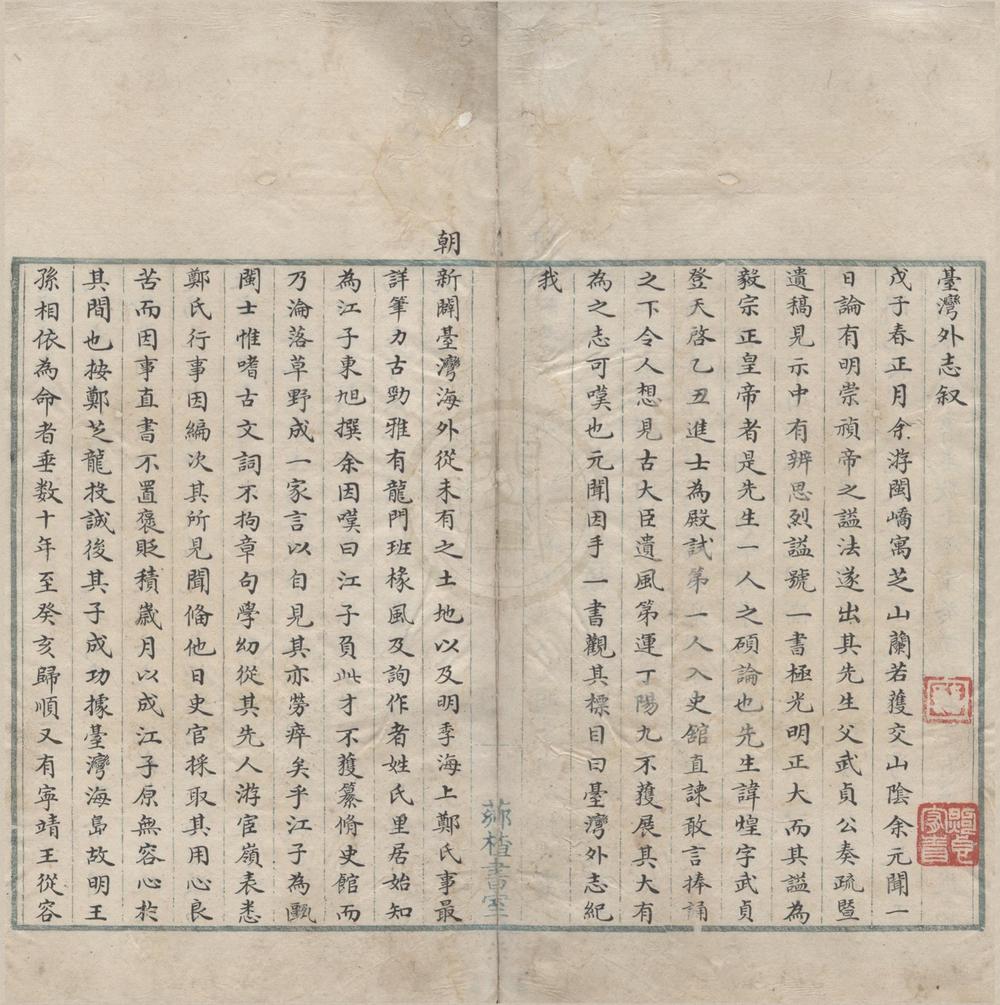 臺灣外志叙
戊子春正月余游閩嶠寓芝山蘭若獲交山陰余元聞一
日論有明崇禎帝之謚法遂出其先生父武貞公奏疏暨
遺稿見示中有辨思烈謚號一書極光明正大而其謚為
毅宗正皇帝者是先生一人之碩論也先生諱煌字武貞
登天啓乙丑進士為殿試第一人入史館直諫敢言捧誦
之下令人想見古大臣遺風第運丁陽九不獲展其大有
為之志可嘆也元聞因手一書觀其標目曰臺灣外志紀
我
朝
新闢臺灣海外從未有之土地以及明季海上鄭氏事最
詳筆力古勁雅有龍門班椽風及詢作者姓氏里居始知
為江子東旭撰余因嘆曰江子負此才不獲纂脩史館而
乃淪落草野成一家言以自見其亦勞瘁矣乎江子為甌
閩士惟嗜古文詞不拘章句學幼從其先人游宦嶺表悉
鄭氏行事因編次其所見聞俻他日史官採取其用心良
苦而因事直書不置褒貶積歲月以成江子原無容心於
其間也按鄭芝龍投誠後其子成功據臺灣海島故明王
孫相依為命者垂数十年至癸亥歸順又有寧靖王從容
書室